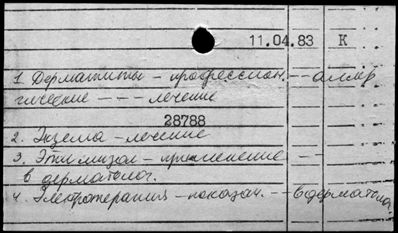 11.04.83 К
1. Дерматиты – профессион. -- аллер
гические --- лечение
28788
2. Экзема – лечение
3. Этимизол – применение –
в дерматолог.
4. Электротерапия – показан. -- в дерматолог